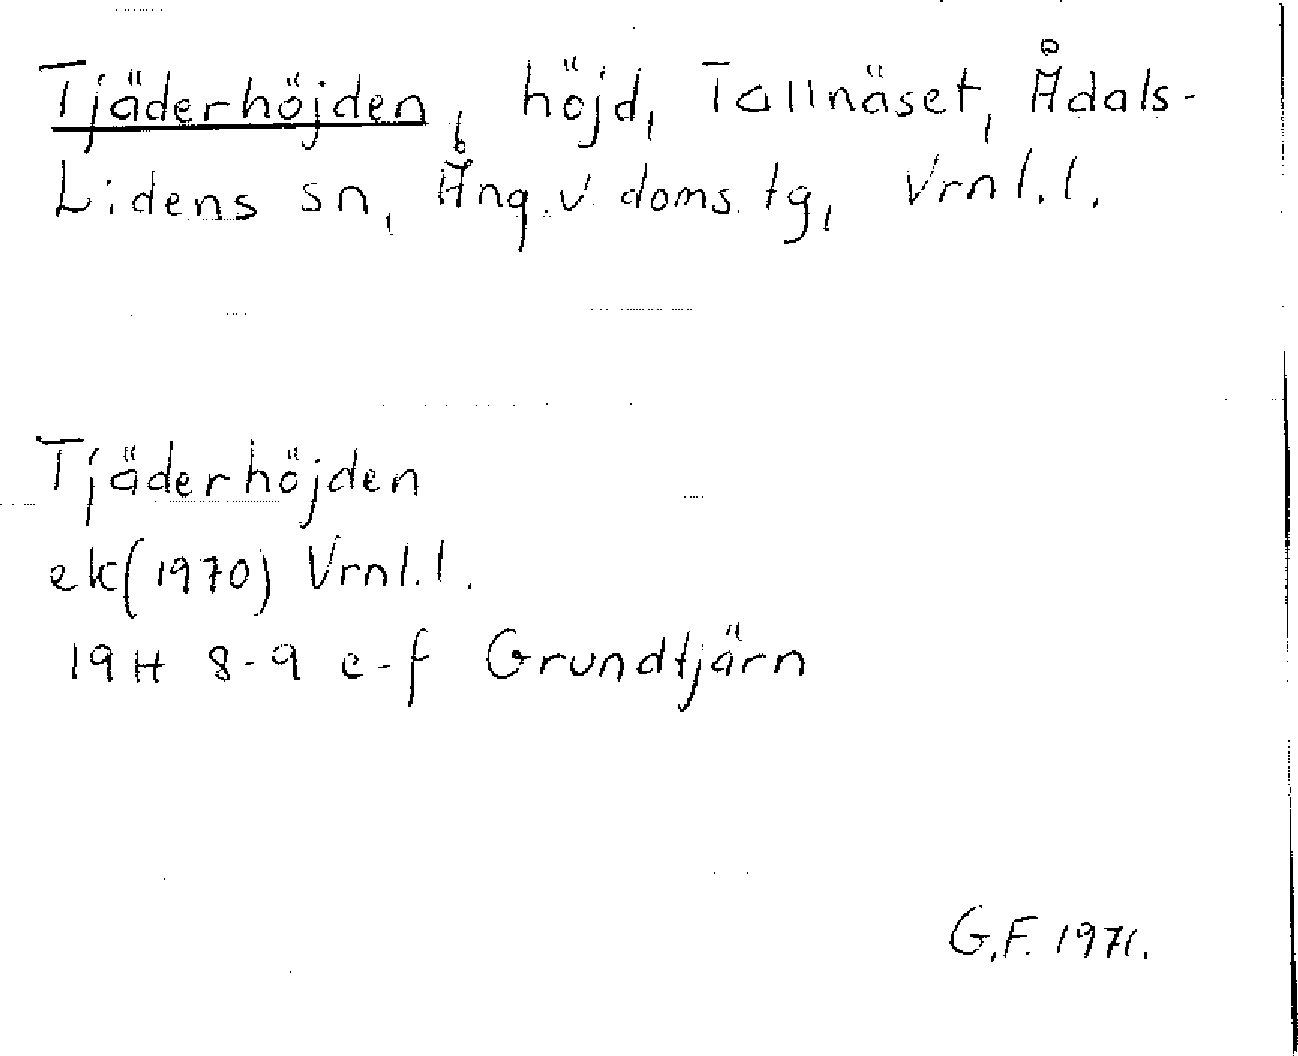 Tjäderhöjden, höjd, Tallnäset, Ådals-
Lidens sn, Ång.v doms.tg, Vrnl.l.
Tjäderhöjden
ek(1970) Vrnl.l.
19H 8-9 e-f Grundtjärn
G.F. 1971.